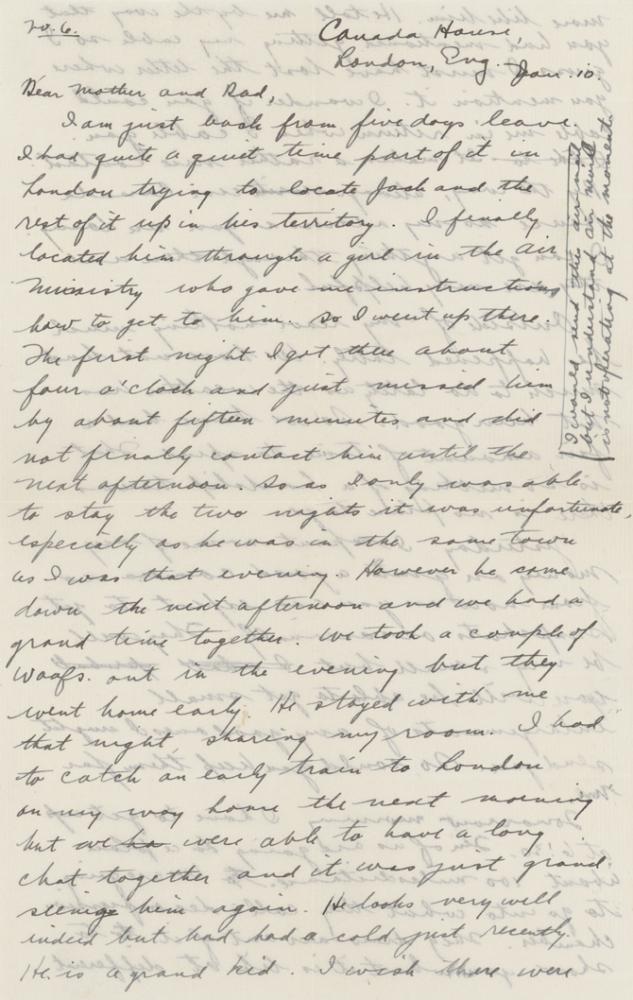 No. 6.
Canada House,
London, Eng. Jan. 10.
Dear Mother and Dad,
I am just back from five days leave.
I had quite a quiet time part of it in
London trying to locate Jack and the
rest of it up in his territory. I finally
located him through a girl in the Air
Ministry who gave me instructions
how to get to him. So I went up there.
The first night I got there about
four o'clock and just missed him
by about fifteen minutes and did
not finally contact him until the
next afternoon. So as I only was able
to stay the two nights it was unfortunate,
especially as he was in the same town
as I was that evening. However he came
down the next afternoon and we had a
grand time together. We took a couple of
Waafs. out in the evening but they
went home early. He stayed with me
that night, sharing my room. I had
to catch an early train to London
on my way home the next morning
but we ha were able to have a long
chat together and it was just grand
seeinge him again. He looks very well
indeed but had had a cold just recently.
He is a grand kid. I wish there were
I would send this air mail
but I understand air mail
is not operating at the moment.